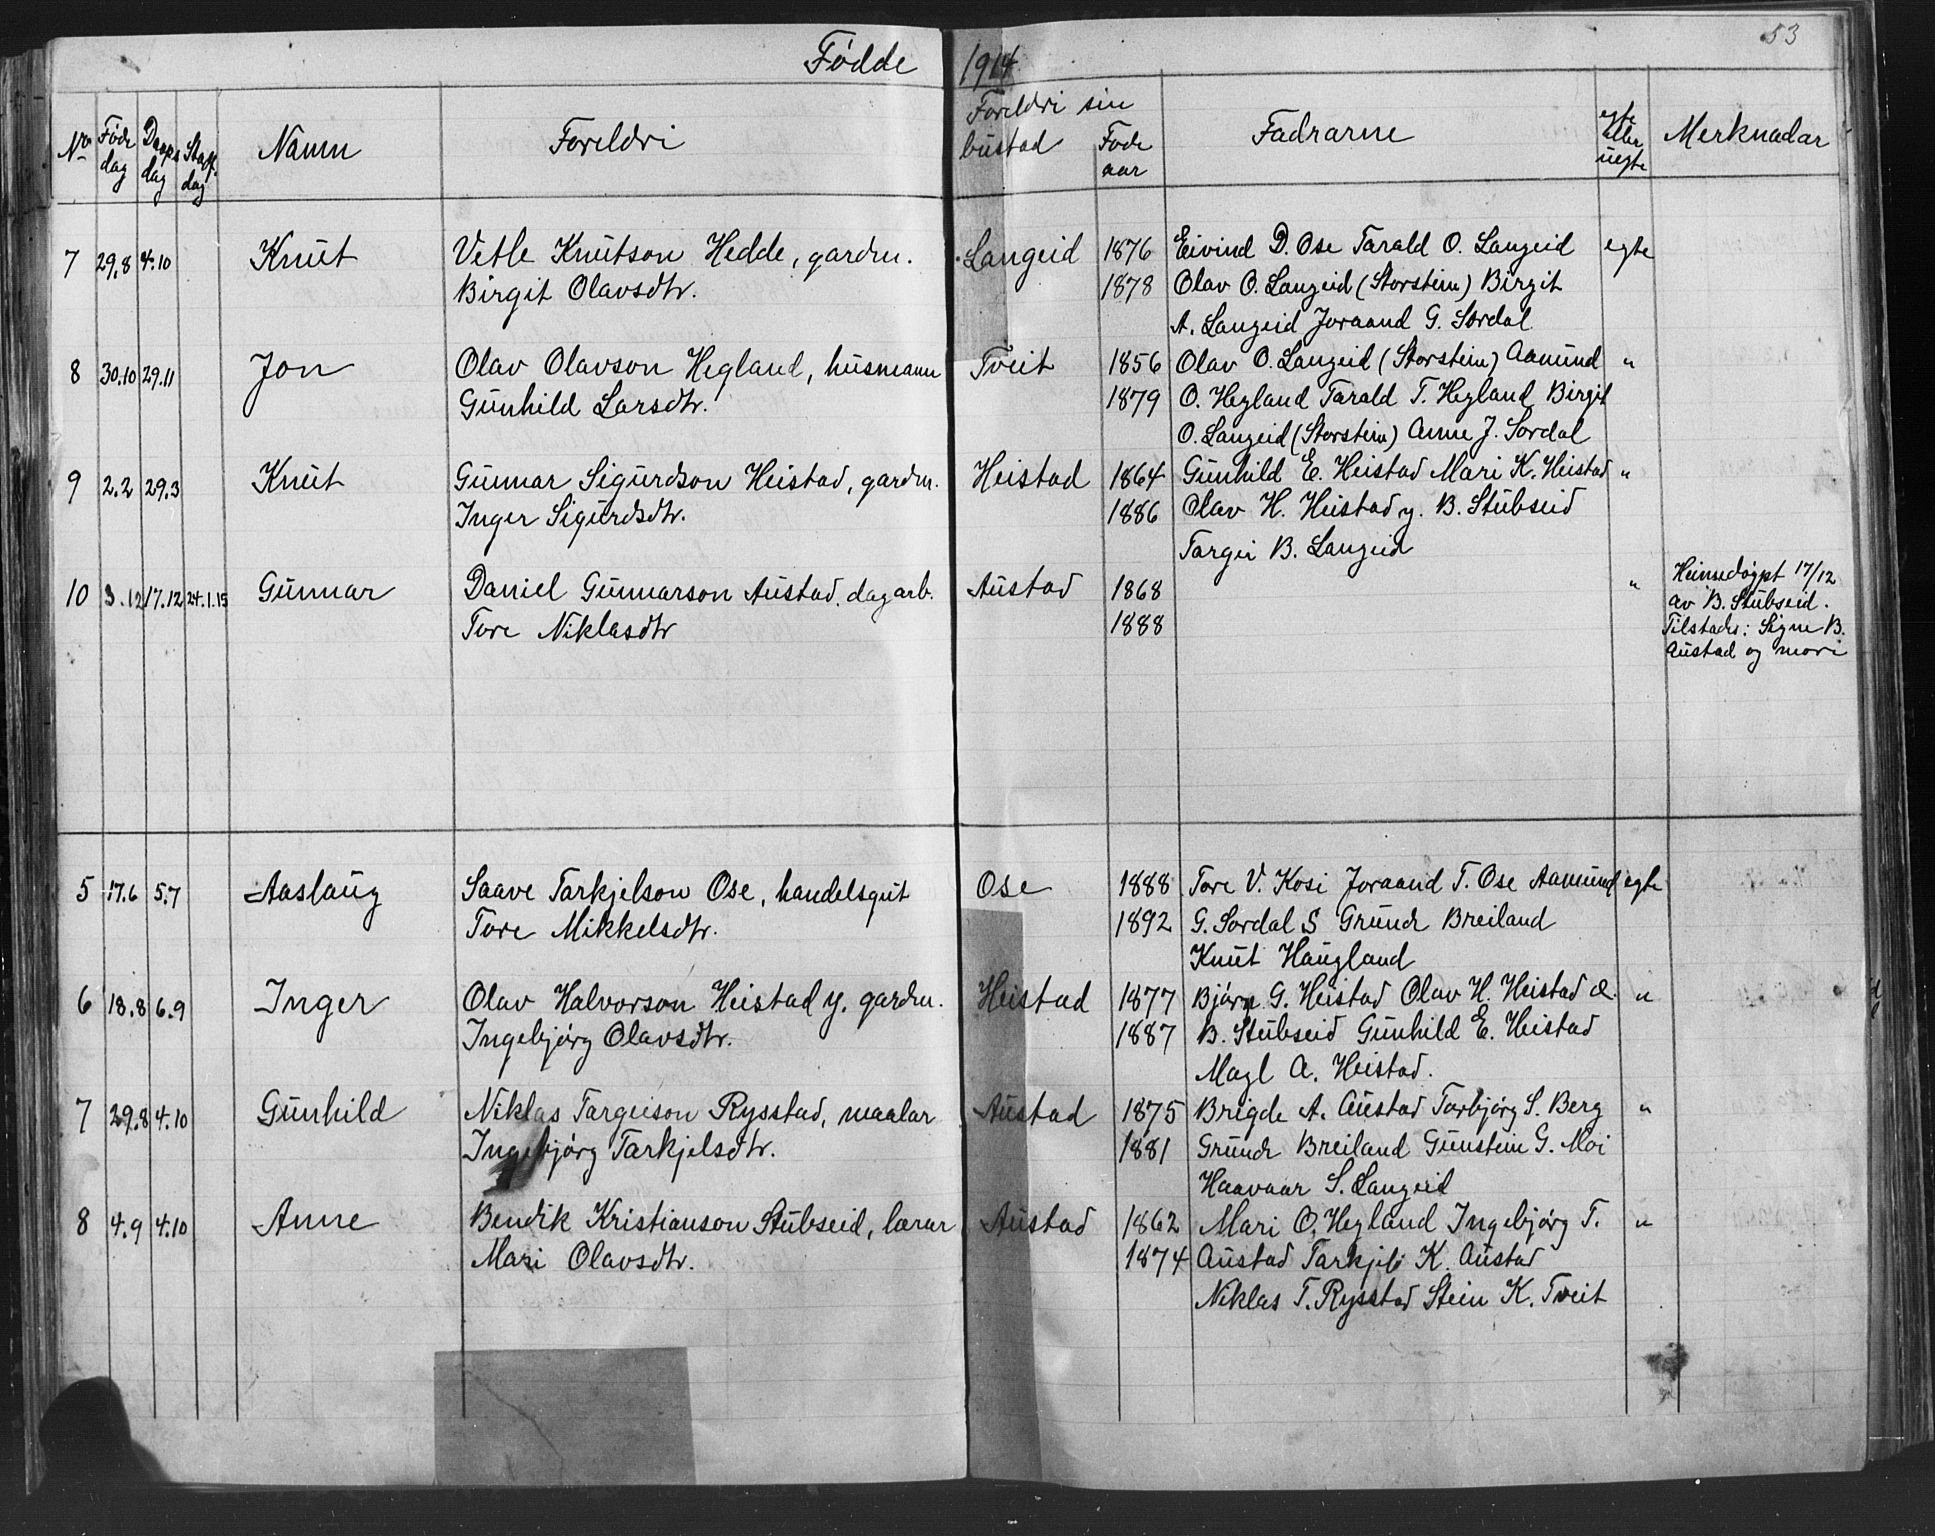 53
Fødde 1914
No Føde dag Daaps dag Stadf. dag Namn Foreldri Foreldri sin bustad Føde aar Fadrarne egte eller uegte Merknadar
7 29.8 4.10 Knut Vetle Knutson Hedde, gardm. Langeid 1876 Eivind D. Ose Tarald O. Langeid egte
Birgit Olavsdtr. 1878 Olav O. Langeid (Storstein) Birgit
A. Langeid Joraand G. Sordal
8 30.10 29.11 Jon Olav Olavson Hegland, husmann Tveit 1856 Olav O. Langeid (Storstein) Aamund "
Gunhild Larsdtr. 1879 O. Hegland Tarald T. Hegland Birgit
O. Langeid (Storstein) Anne J. Sordal
9 2.2 29.3 Knut Gunnar Sigurdson Heistad, gardm. Heistad 1864 Gunhild E. Heistad Mari K. Heistad "
Inger Sigurdsdtr. 1886 Olav H. Heistad y. B. Stubseid
Targei B. Langeid
10 3.12 17.12 24.1.15 Gunnar Daniel Gunnarson Austad, dagarb. Austad 1868 " Heimedøypt 17/12
Tore Niklasdtr 1888 av B. Stubseid.
Tilstads: Signe B.
Austad og mori
5 17.6 5.7 Aaslaug Saave Tarkjelson Ose, handelsgut Ose 1888 Tore V. Kosi Joraand T. Ose Aamund egte
Tore Mikkelsdtr. 1892 G. Sordal S Grunde Breiland
Knut Haugland
6 18.8 6.9 Inger Olav Halvorson Heistad y. gardm. Heistad 1877 Bjørn G. Heistad Olav H. Heistad e. "
Ingebjørg Olavsdtr. 1887 B. Stubseid Gunhild E. Heistad
Magl A. Heistad.
7 29.8 4.10 Gunhild Niklas Targeison Rysstad, maalar Austad 1875 Brigde A. Austad Torbjørg S. Berg "
Ingebjørg Tarkjelsdtr. 1881 Grunde Breiland Gunstein G. Moi
Haavaar S. Langeid
8 4.9 4.10 Anne Bendik Kristianson Stubseid, lærar Austad 1862 Mari O. Hegland Ingebjørg T. "
Mari Olavsdtr. 1874 Austad Tarkjel K. Austad
Niklas T. Rysstad Stein K. Tveit